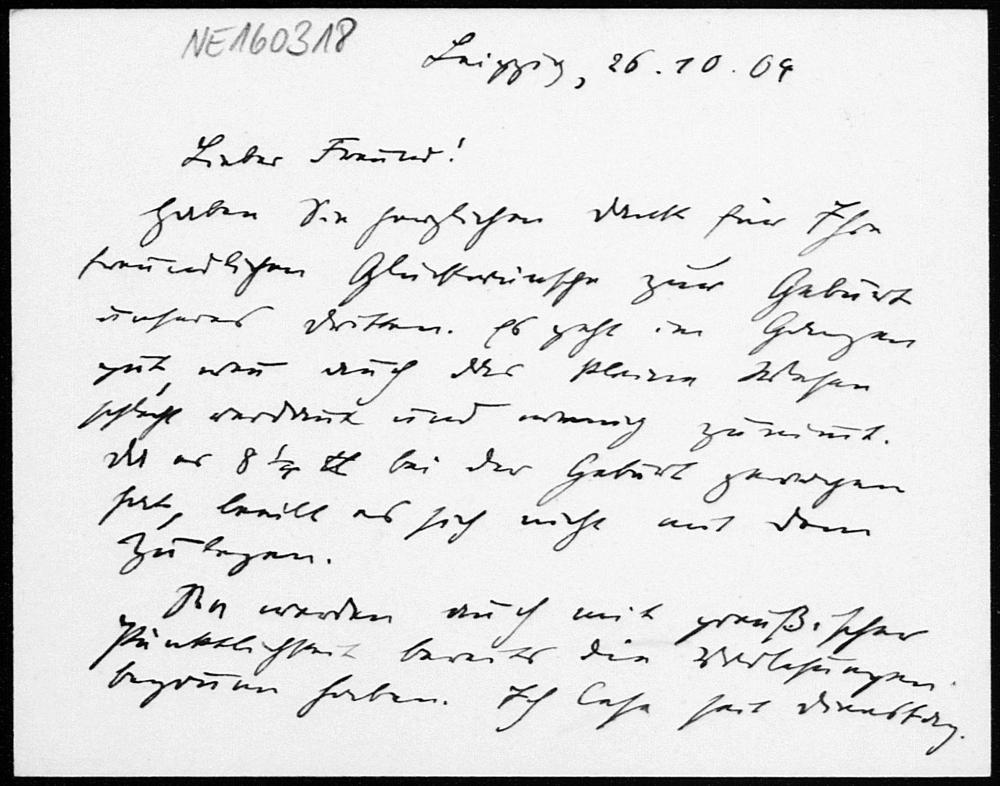 NE160318
Leipzig, 26.10.04
Lieber Freund!
Haben Sie herzlichen Dank für Ihre
freundlichen Glückwünsche zur Geburt
unseres Dritten. Es geht im Ganzen
gut, wenn auch das kleine Wesen
schlecht verdaut und wenig zunimt.
Da es 8 ½ ℔ bei der Geburt gewogen
hat, beeilt es sich nicht mit dem
Zulegen.
Sie werden auch mit preußischer
Pünktlichkeit bereits die Vorlesungen
begonnen haben. Ich lese seit Dienstag.